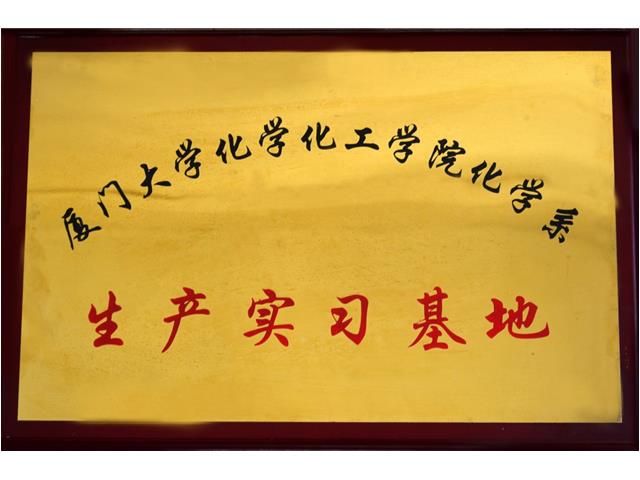 厦门大学化学化工学院化学系
生产实习基地